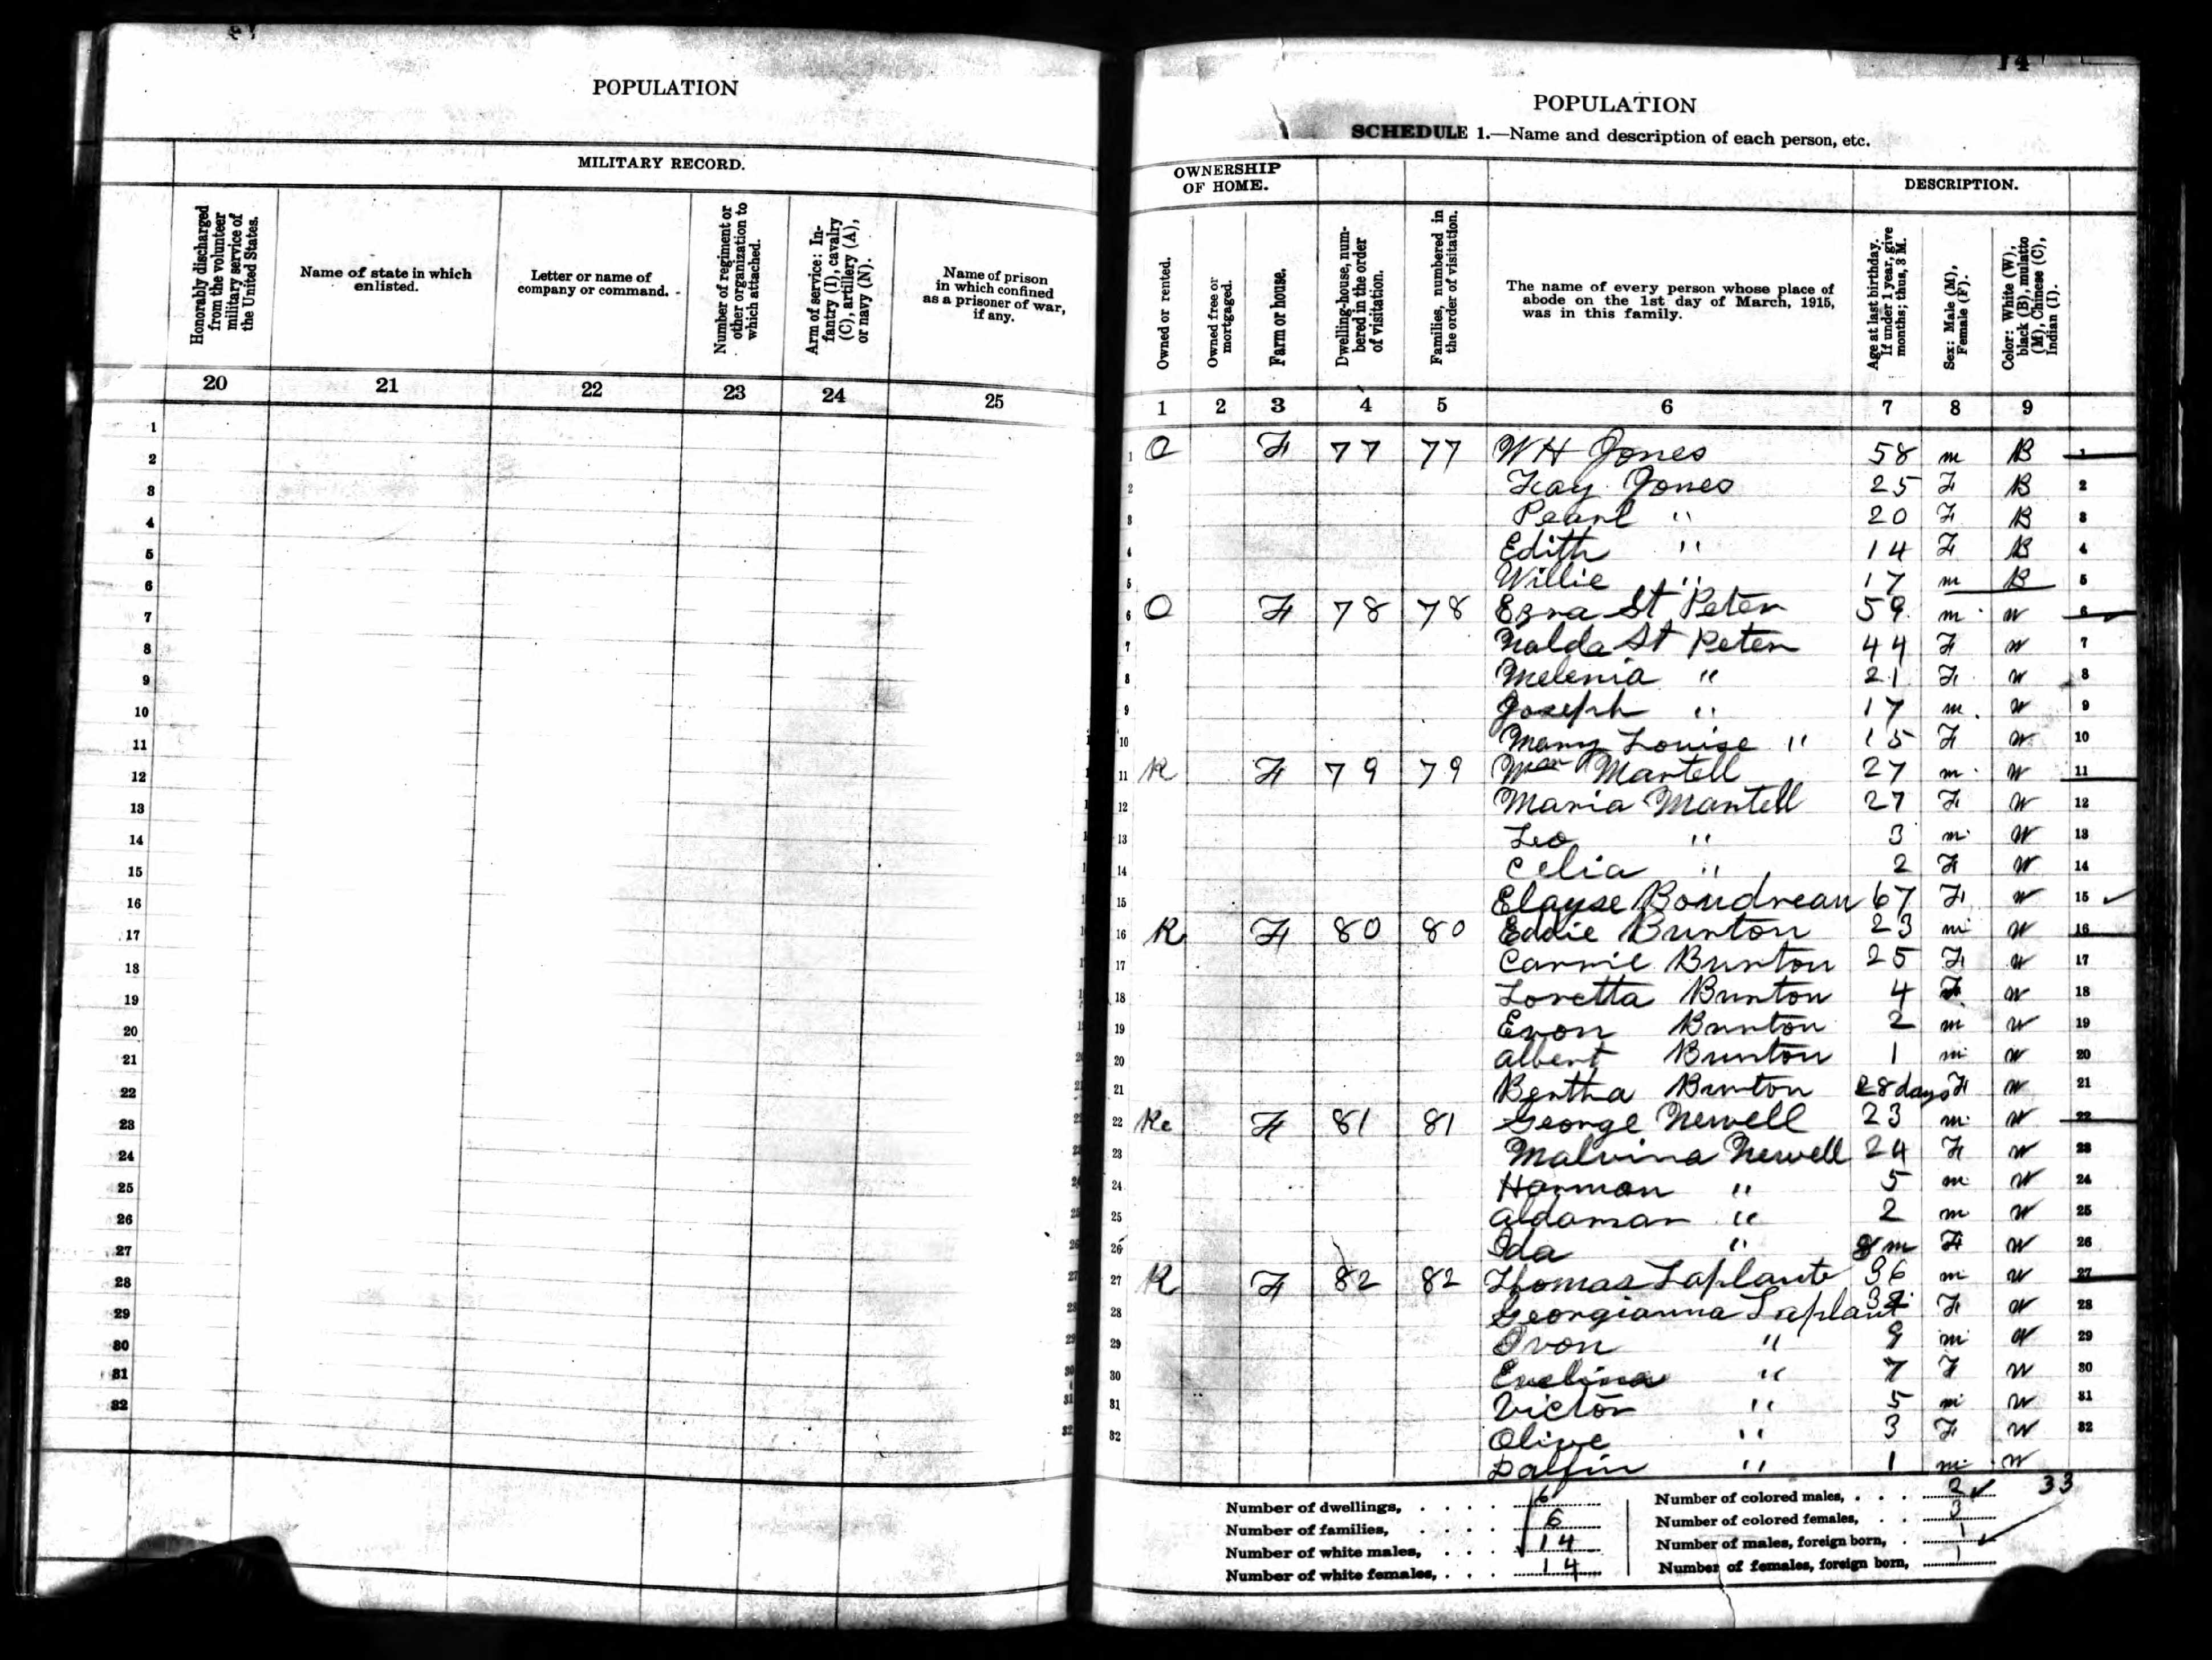 POPULATION
MILITARY RECORD.
Honorably discharged from the volunteer military service of the United States.
Name of state in which enlisted.
Letter or name of company or command.
Number of regiment or other organization to which attached.
Arm of service: Infantry (I), cavalry (C), artillery (A), or navy (N).
Name of prison in which confined as a prisoner of war, if any.
20 21 22 23 24 25
1
2
3
4
5
6
7
8
9
10
11
12
13
14
15
16
17
18
19
20
21
22
23
24
25
26
27
28
29
30
31
32
14
POPULATION
SCHEDULE 1.—Name and description of each person, etc.
OWNERSHIP OF HOME.
DESCRIPTION.
Owned or rented.
Owned free or mortgaged.
Farm or house.
Dwelling-house, numbered in the order of visitation.
Families, numbered in the order of visitation.
The name of every person whose place of abode on the 1st day of March, 1915, was in this family.
Age at last birthday. If under 1 year, give months; thus, 3 M.
Sex: Male (M), Female (F).
Color: White (W), black (B), mulatto (M), Chinese (C), Indian (I).
1 2 3 4 5 6 7 8 9
1 O F 77 77 W H Jones 58 m B 1
2 Fay Jones 25 F B 2
3 Pearl " 20 F B 3
4 Edith " 14 F B 4
5 Willie " 17 m B 5
6 O F 78 78 Ezra St Peter 59 m W 6
7 Nalda St Peter 44 F W 7
8 Melenia " 21 F W 8
9 Joseph " 17 m W 9
10 Mary Louise " 15 F W 10
11 R F 79 79 Wm Martell 27 m W 11
12 Maria Martell 27 F W 12
13 Leo " 3 m W 13
14 Celia " 2 F W 14
15 Elayse Boudreau 67 F W 15
16 R F 80 80 Eddie Burton 23 m W 16
17 Carrie Burton 25 F W 17
18 Loretta Burton 4 F W 18
19 Evon Burton 2 m W 19
20 Albert Burton 1 m W 20
21 Bertha Burton 28 days F W 21
22 Re F 81 81 George Newell 23 m W 22
23 Malvina Newell 24 F W 23
24 Harman " 5 m W 24
25 Aldaman " 2 m W 25
26 Ida " 8 m F W 26
27 R F 82 82 Thomas Laplante 36 m W 27
28 Georgianna Laplant F W 28
29 Ovon " 9 m W 29
30 Evelina " 7 F W 30
31 Victor " 5 m W 31
32 Olive " 3 F W 32
Dalfin " 1 m W
33
Number of dwellings, . . . . 6
Number of families, . . . . 6
Number of white males, . . . 14
Number of white females, . . . 14
Number of colored males, . . . 2
Number of colored females, . . 3
Number of males, foreign born, . 1
Number of females, foreign born, 1